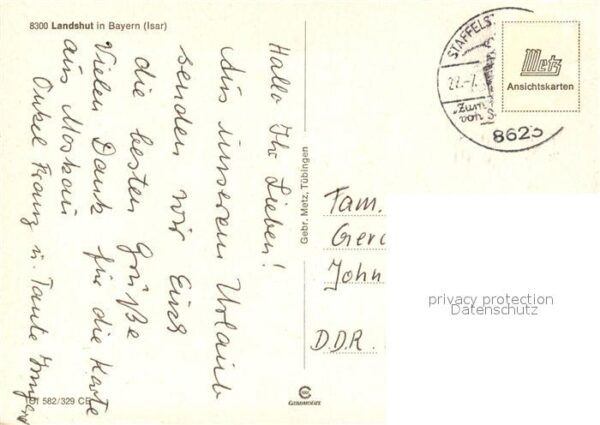 8300 Landshut in Bayern (Isar)
Hallo Ihr Lieben!
Aus unserem Urlaub
senden wir Euch
die besten Grüße
Vielen Dank für die Karte
aus Moskau
Onkel Franz u. Tante
Gebr. Metz, Tübingen
STAFFELS
22.-7.
von
8623
Metz
Ansichtskarten
Fam.
Gerd
John
DDR.
privacy protection
Datenschutz
582/329 CE